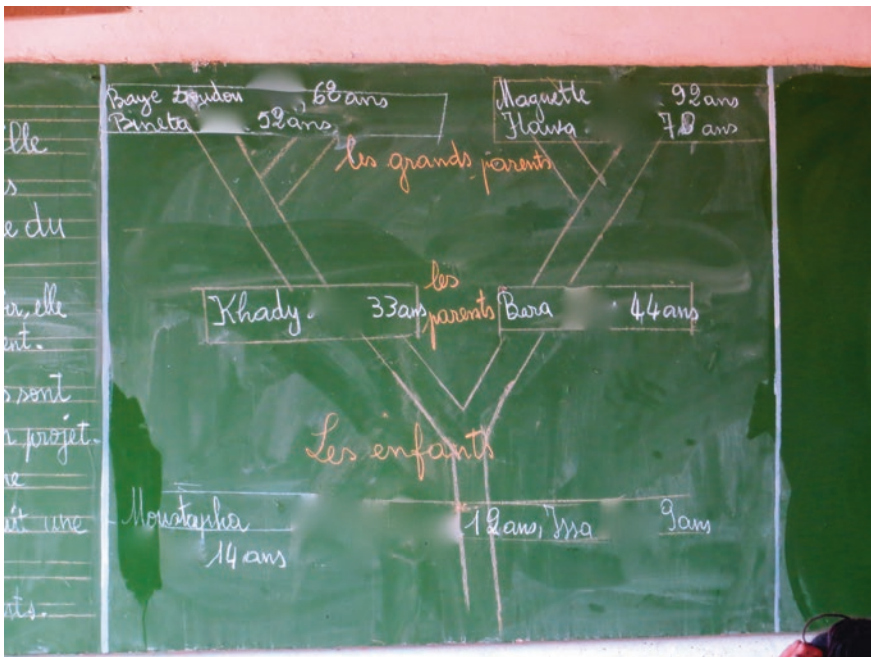 lle
s
e du
ir, elle
ent.
s sont
n projet.
ne
une
nts.
Baye 62 ans
Bineta 52 ans
Maguette 92 ans
Hawa 78 ans
les grands parents
Khady 33 ans
les
parents
Bara 44 ans
Les enfants
Moustapha
14 ans
12 ans, Issa 9 ans